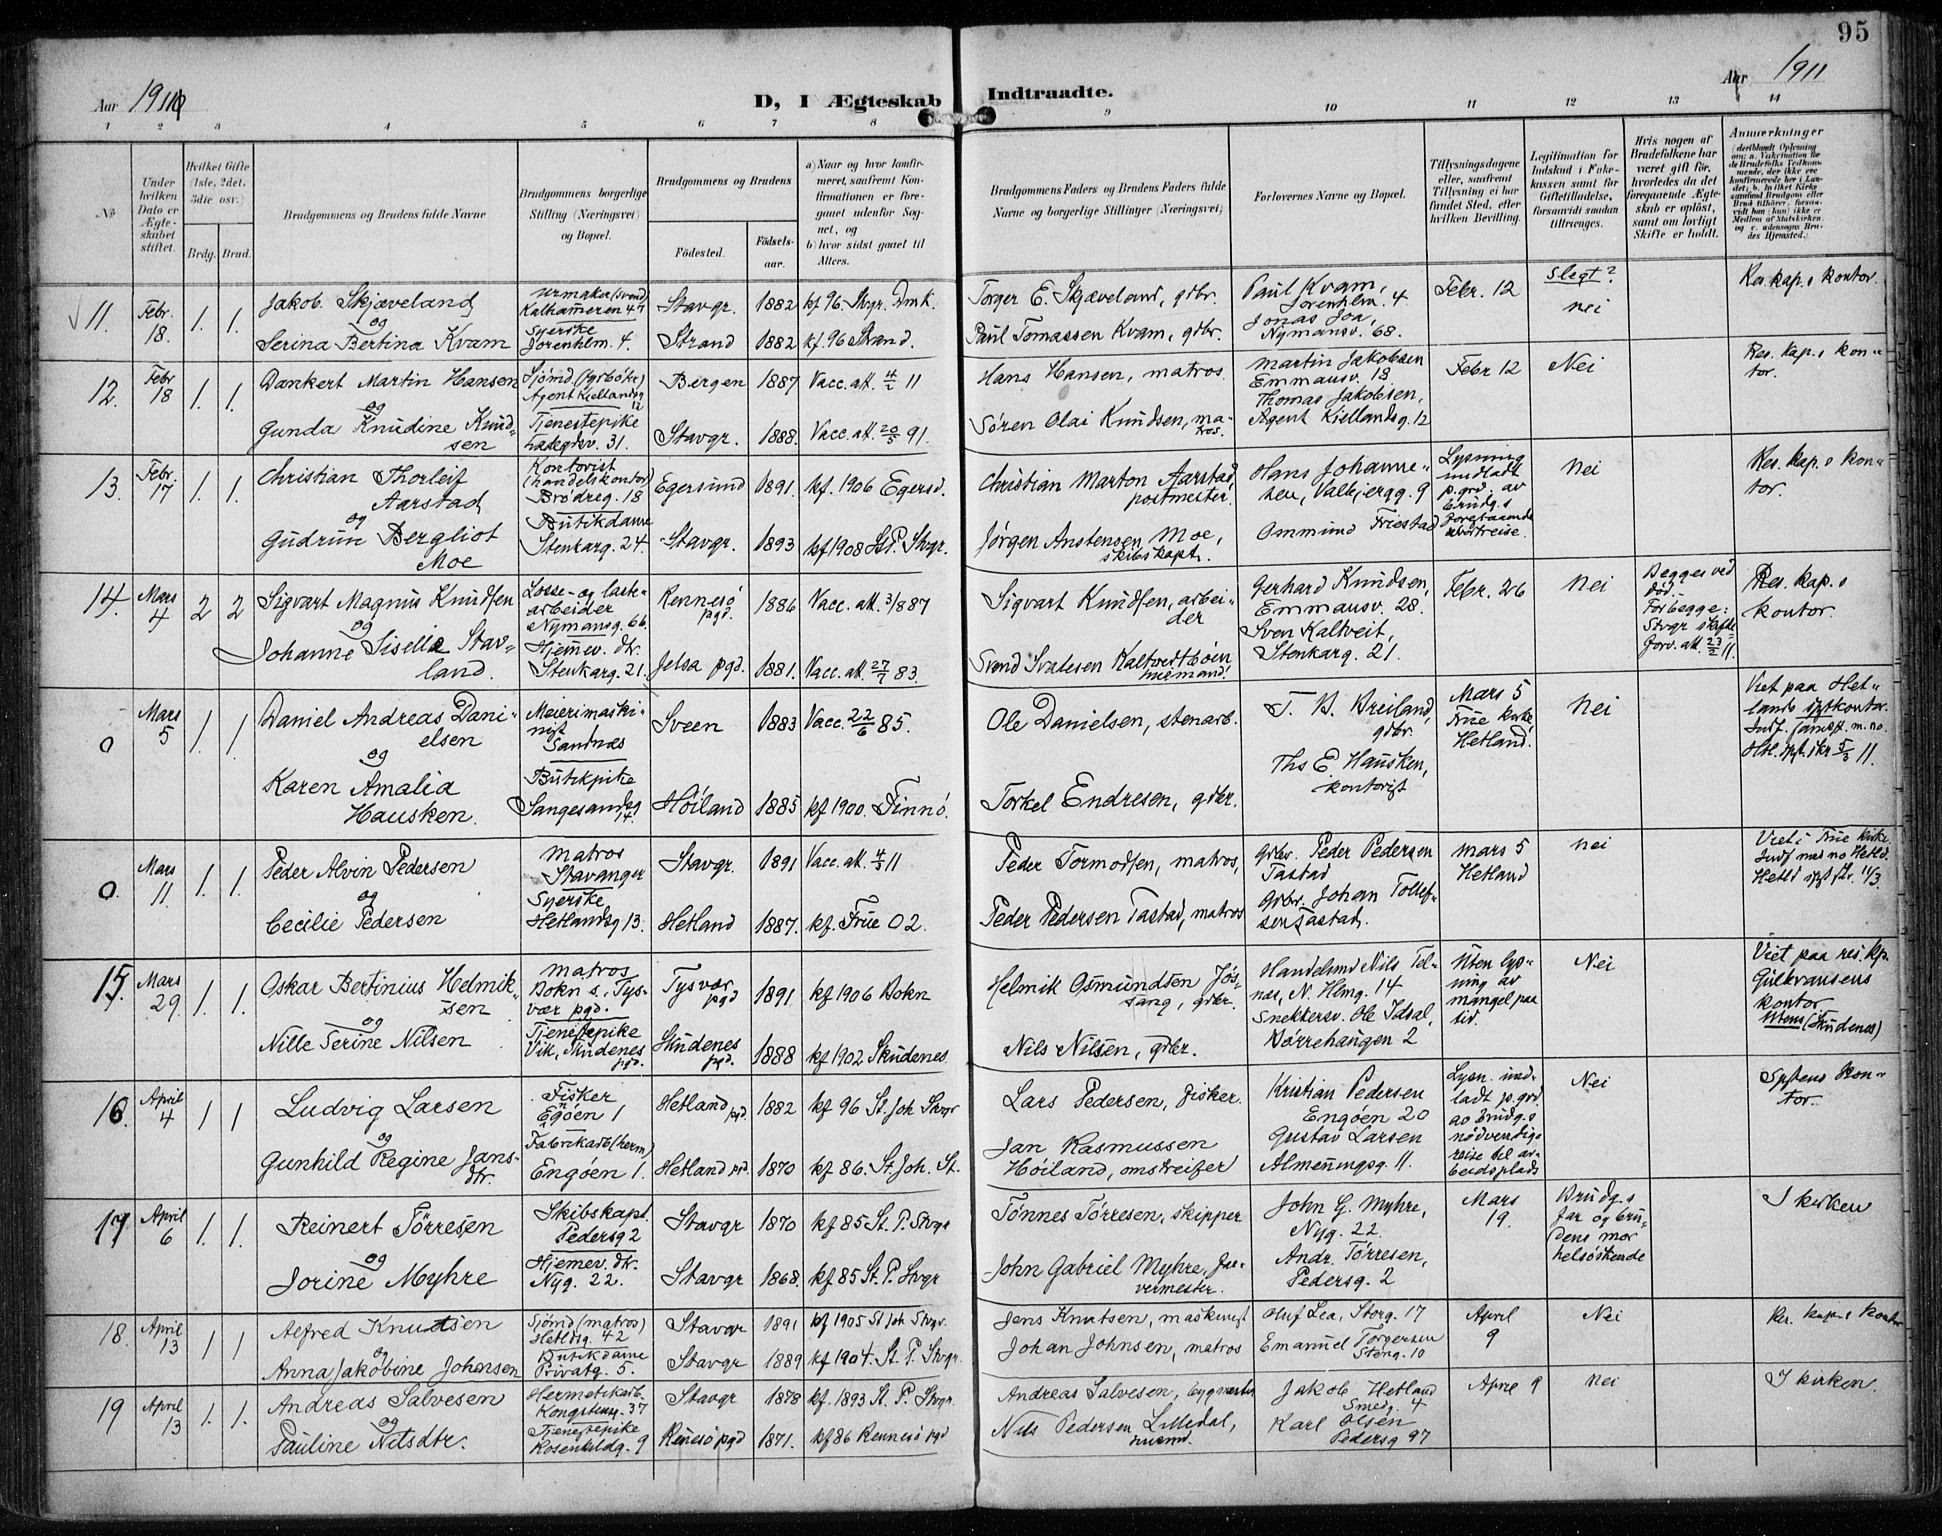 95
Aar 1911
D, I Ægteskab Indtraadte.
Aar 1911
1 2 3 4 5 6 7 8 9 10 11 12 13 14
No.
Under hvilken Dato er Ægteskabet stiftet.
Hvilket Gifte (1ste, 2det, 3die osv.)
Brdg. Brud.
Brudgommens og Brudens fulde Navne
Brudgommens borgerlige Stilling (Næringsvei) og Bopæl.
Brudgommens og Brudens
Födested.
Födselsaar.
a) Naar og hvor konfirmeret, saafremt Konfirmationen er foregaaet udenfor Sognet, og
b) hvor sidst gaaet til Alters.
Brudgommens Faders og Brudens Faders fulde Navne og borgerlige Stillinger (Næringsvei)
Forlovernes Navne og Bopæl.
Tillysningsdagene eller, saafremt Tillysning ei har fundet Sted, efter hvilken Bevilling.
Legitimation for Indskud i Enkekassen samt for Giftetilladelse, forsaavidt saadan tiltrænges.
Hvis nogen af Brudefolkene har været gift før, hvorledes da det foregaaende Ægteskab er oplöst, samt om lovligt Skifte er holdt.
Anmærkninger
11. Febr. 18. 1. 1.
Jakob Skjæveland
og
Serina Bertina Kvam
Urmaker (svend)
Kalhammeren 47
Syerske
Jorenholm. 4.
Stavgr. 1882 kf 96 Stvgr. Dmk.
Strand 1882 kf. 96 Strand.
Torger E. Skjæveland, gbr.
Paul Tomassen Kvam, gbr.
Paul Kvam,
Jorenholm. 4
Jonas Joa,
Nymansv. 68.
Febr. 12
Slegt?
nei
Res. kap.s kontor.
12. Febr 18 1. 1.
Dankert Martin Hansen
og
Gunda Knudine Knudsen
Sjömd. (fyrböter)
Agent Kiellandsg 12
Tjenestepike
Ladegdsv. 31.
Bergen 1887 Vacc. att. 4/2 11
Stavgr. 1888. Vacc. att. 20/5 91.
Hans Hansen, matros.
Sören Olai Knudsen, matros.
Martin Jakobsen
Emmausv. 18
Thomas Jakobsen,
Agent Kiellandsg. 12
Febr 12
Nei
Res. kap.s kontor.
13. Febr. 17 1. 1.
Christian Thorleif
Aarstad
og
Gudrun Bergliot
Moe
Kontorist
(handelskontor)
Brödreg. 18
Butikdame
Stenkarg. 24
Egersund 1891. kf. 1906 Egersd.
Stavgr. 1893 kf 1908 St P. Stvgr.
Christian Marton Aarstad,
postmester.
Jørgen Anstensen Moe,
skibskapt.
Hans Johannesen, Valbjergg. 9
Ommund Friestad
Lysning
undladt
p. grd. av
Brudg.s
foretaaende
avreise.
Nei
Res. kap.s kontor.
14. Mars 4 2 2
Sigvart Magnus Knudsen
og
Johanne Sisella Stavland.
Losse- og lastearbeider
Nymansg. 66.
Hjemmev. dtr.
Stenkarg. 21.
Rennesö pgd. 1886 Vacc. att. 3/1 887
Jelsa pgd. 1881. Vacc. att. 27/7 83.
Sigvart Knudsen, arbeider
Gerhard Knudsen,
Emmausv. 28.
Sven Kaltveit,
Stenkarg. 21.
Febr. 26
Nei
Begges ved
död.
For begge:
Stvgr skifteforv. att. 23/2 11.
Res. kap.s
kontor.
0 Mars 5 1. 1
Daniel Andreas Danielsen
og
Karen Amalia
Hausken.
Meierimaskinist
Sandnæs
Butikpike
Langesandsg 14.
Sveen 1883 Vacc. 22/6 85.
Höiland 1885 kf 1900. Finnö.
Ole Danielsen, stenarb.
Torkel Endresen, gbr.
T. B. Breiland,
gbr.
Ths E Hausken,
kontorist
Mars 5
Frue kirke,
Hetland.
Nei
Viet paa Hetlands sptkontor.
0. Mars 11. 1. 1.
Peder Alvin Pedersen
og
Cecilie Pedersen
Matros
Stavanger
Syerske
Hetlandsg 13.
Stavgr. 1891 Vacc. att. 4/3 11
Hetland 1887. kf. Frue 02.
Peder Tormodsen, matros,
Peder Pedersen Tastad, matros
Gbr. Peder Pedersen
Tastad
Gbr. Johan Tollefsen Tastad.
Mars 5
Hetland
Nei
Viet i Frue kirke
15. Mars 29. 1. 1.
Oskar Bertinius Helmiksen
og
Nille Serine Nilsen
Matros
Bokn s., Tysvær pgd.
Tjenestepike
Vik, Skudenes
pgd.
Tysvær pgd 1891 kf 1906 Bokn
Skudenes pgd. 1888 kf 1902 Skudenes
Helmik Osmundsen Jøssang, gbr.
Nils Nilsen, gbr.
Handelsmd Nils Telnæs, N. Hlmg. 14
Snekkersv. Ole Idsal,
Dørrehaugen 2
Uten lysning av
mangel paa
tid.
Nei
Viet paa res. kp.
kontor
(Skudenes)
16. April 4 1 1
Ludvig Larsen
og
Gunhild Regine Jansdtr.
Fisker
Engöen 1
Fabrikarb (herm)
Engöen 1.
Hetland pgd. 1882 kf 96 St. Joh Stvgr
Hetland pgd. 1870 kf 86. St. Joh. St.
Lars Pedersen, fisker.
Jan Rasmussen
Höiland, omstreifer
Kristian Pedersen
Engöen 20
Gustav Larsen
Almenningsg. 11.
Lysn. undladt p. grd
av Brudg.s
nödvendige
reise til arbeidsplads
Nei
Sptens Kontor.
17 April 6 1. 1.
Reinert Törresen
og
Jorine Myhre
Skibskapt.
Pedersg 2
Hjemev. dtr.
Nyg. 22.
Stavgr 1870 kf 85 St. P. Stvgr
Stavgr 1868. kf 85 St. P. Stvgr
Tönnes Törresen, skipper
John Gabriel Myhre, farvermester.
John G. Myhre,
Nyg. 22.
Andr. Törresen,
Pedersg. 2
Mars
19.
Brudg.s
far og brudens mor
helsöskende
I kirken
18. April 13 1 1
Alfred Knudsen
og
Anna Jakobine Johnsen
Sjömd (matros)
Hetldsg. 42
Butikdame
Privatg. 5.
Stavgr 1891 kf 1905 St Joh Stvgr.
Stavgr 1889 kf 1904. St. P. Stvgr.
Jens Knutsen, maskinist
Johan Johnsen, matros
Oluf Lea, Storg. 17
Emanuel Torgersen
Steng. 10
April
9
Nei
Res. kap.s kontor
19 April 13 1. 1.
Andreas Salvesen
og
Pauline Nilsdtr.
Hermetikarb.
Kongstensg. 37
Tjenestepike
Rosenkildg. 9
Stavgr 1878 kf. 1893 St. P. Stvgr.
Rennesö pgd 1871. kf 86 Rennesö pgd
Andreas Salvesen, bygmester
Nils Pedersen Lilledal,
husmd.
Jakob Hetland
Smedg. 4
Karl Olsen
Pedersg 97
April 9
Nei
I kirken.